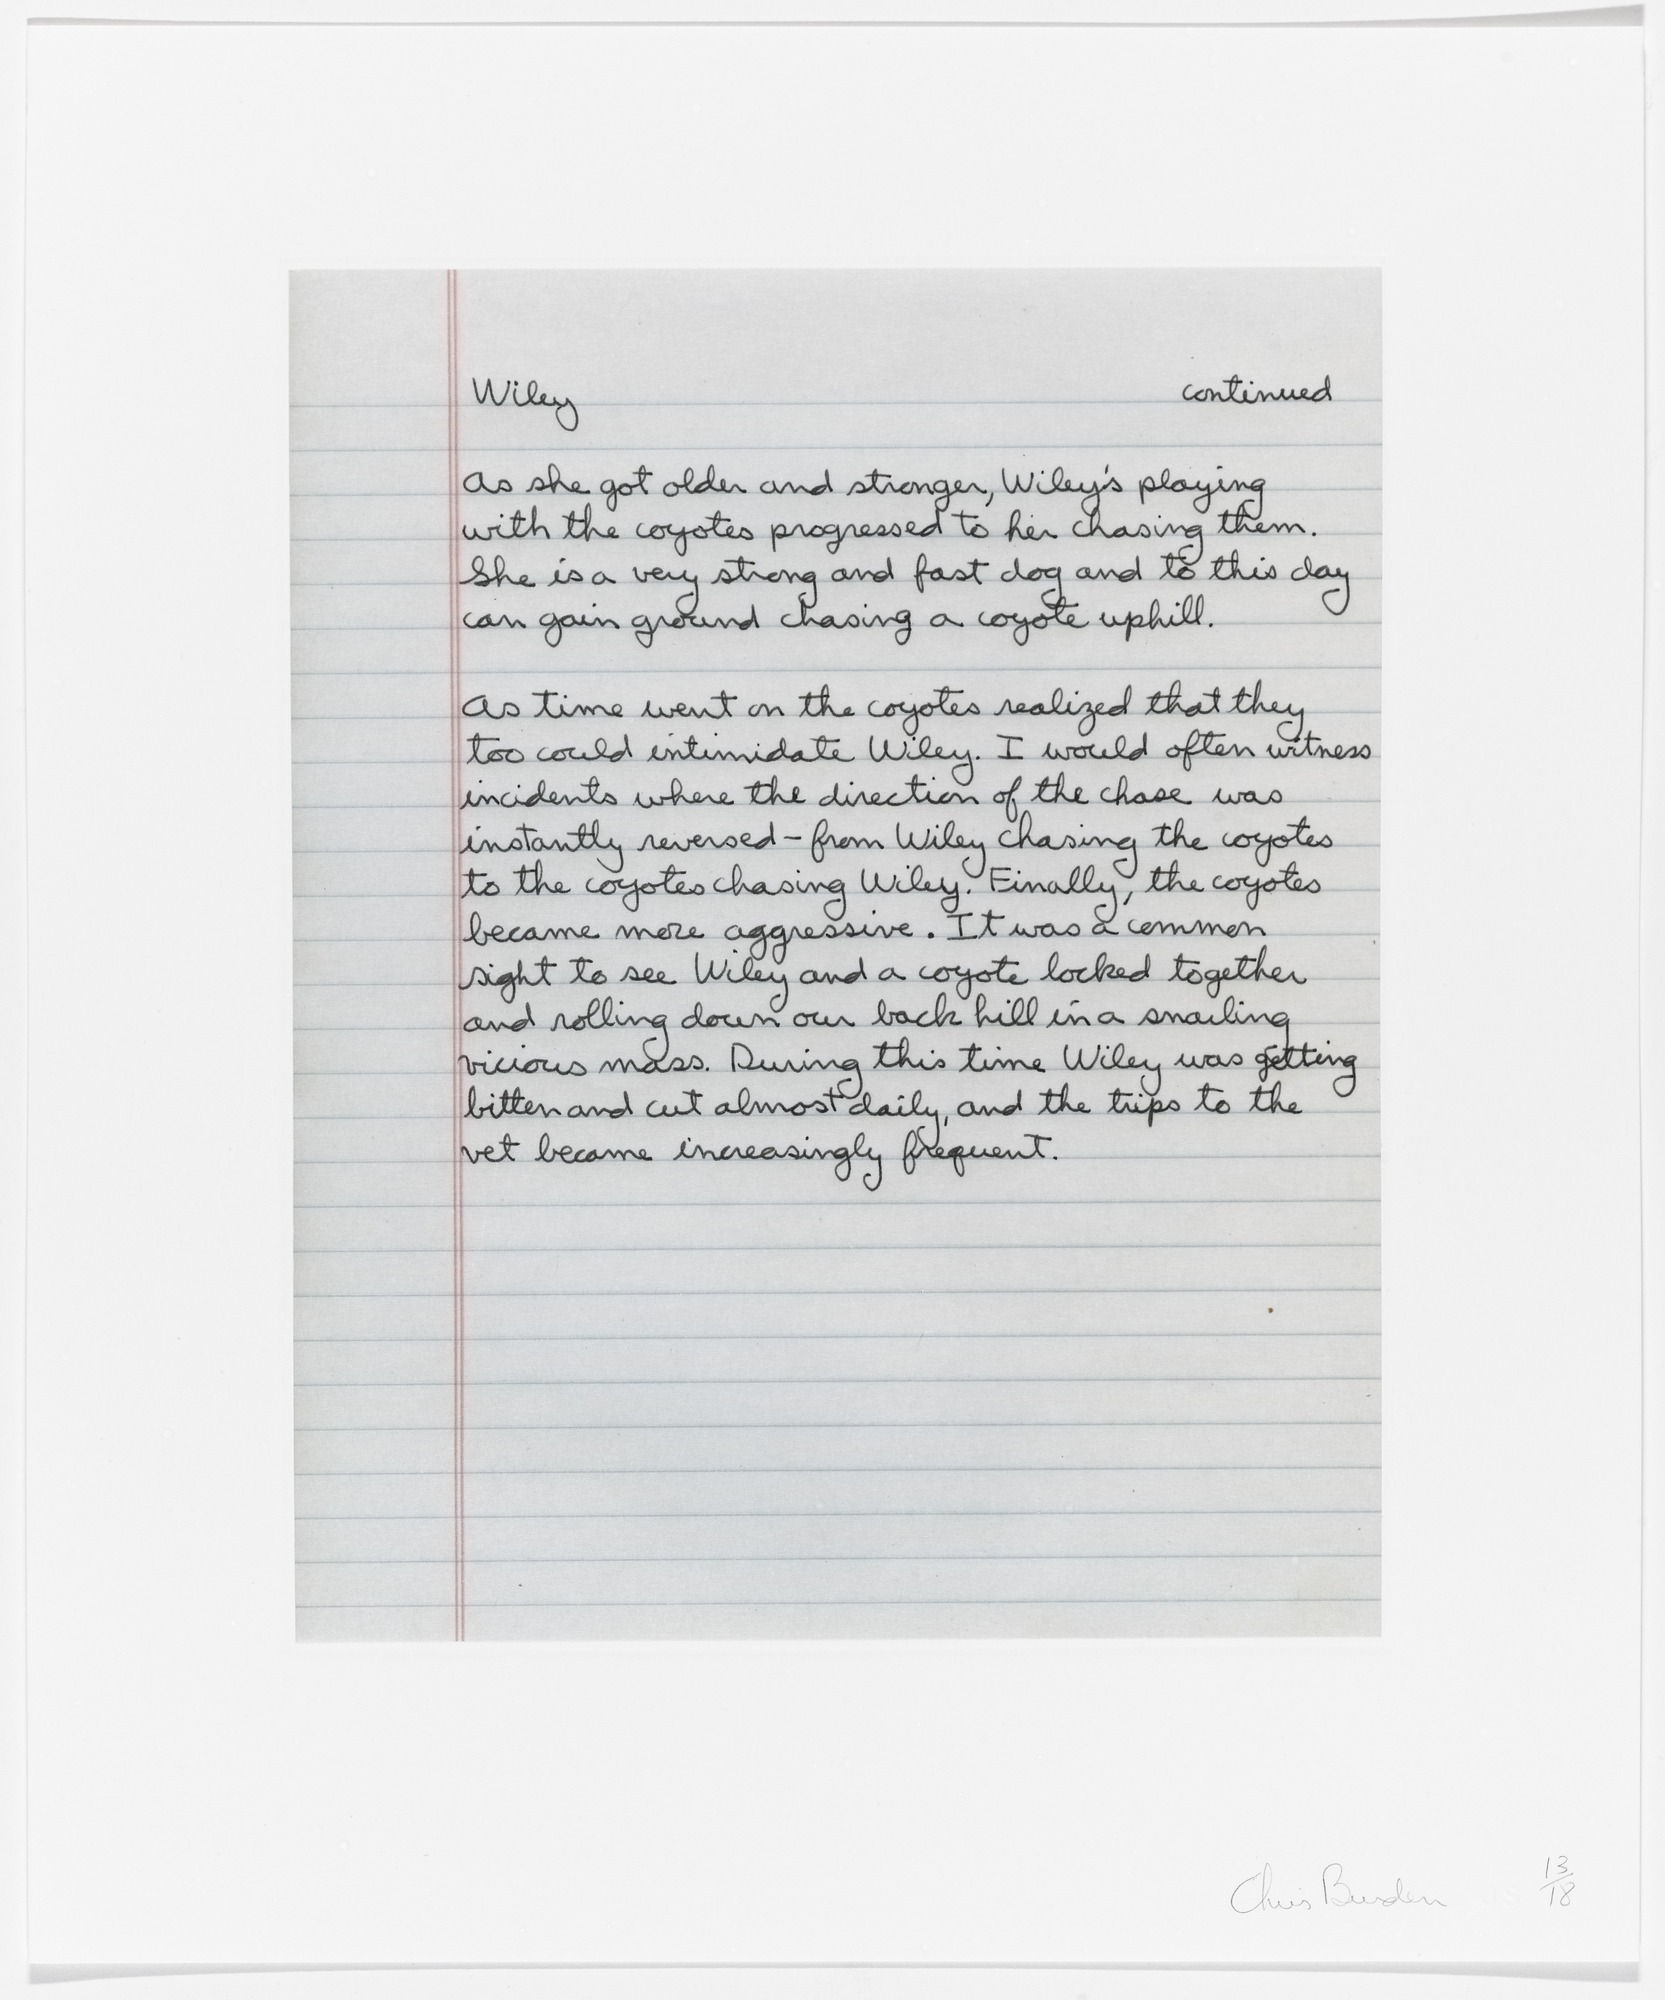 Wiley continued
As she got older and stronger, Wiley's playing
with the coyotes progressed to her chasing them.
She is a very strong and fast dog and to this day
can gain ground chasing a coyote uphill.
As time went on the coyotes realized that they
too could intimidate Wiley. I would often witness
incidents where the direction of the chase was
instantly reversed - from Wiley chasing the coyotes
to the coyotes chasing Wiley. Finally, the coyotes
became more aggressive. It was a common
sight to see Wiley and a coyote locked together
and rolling down our back hill in a snarling
vicious mass. During this time Wiley was getting
bitten and cut almost daily, and the trips to the
vet became increasingly frequent.
Chris Burden 13/18